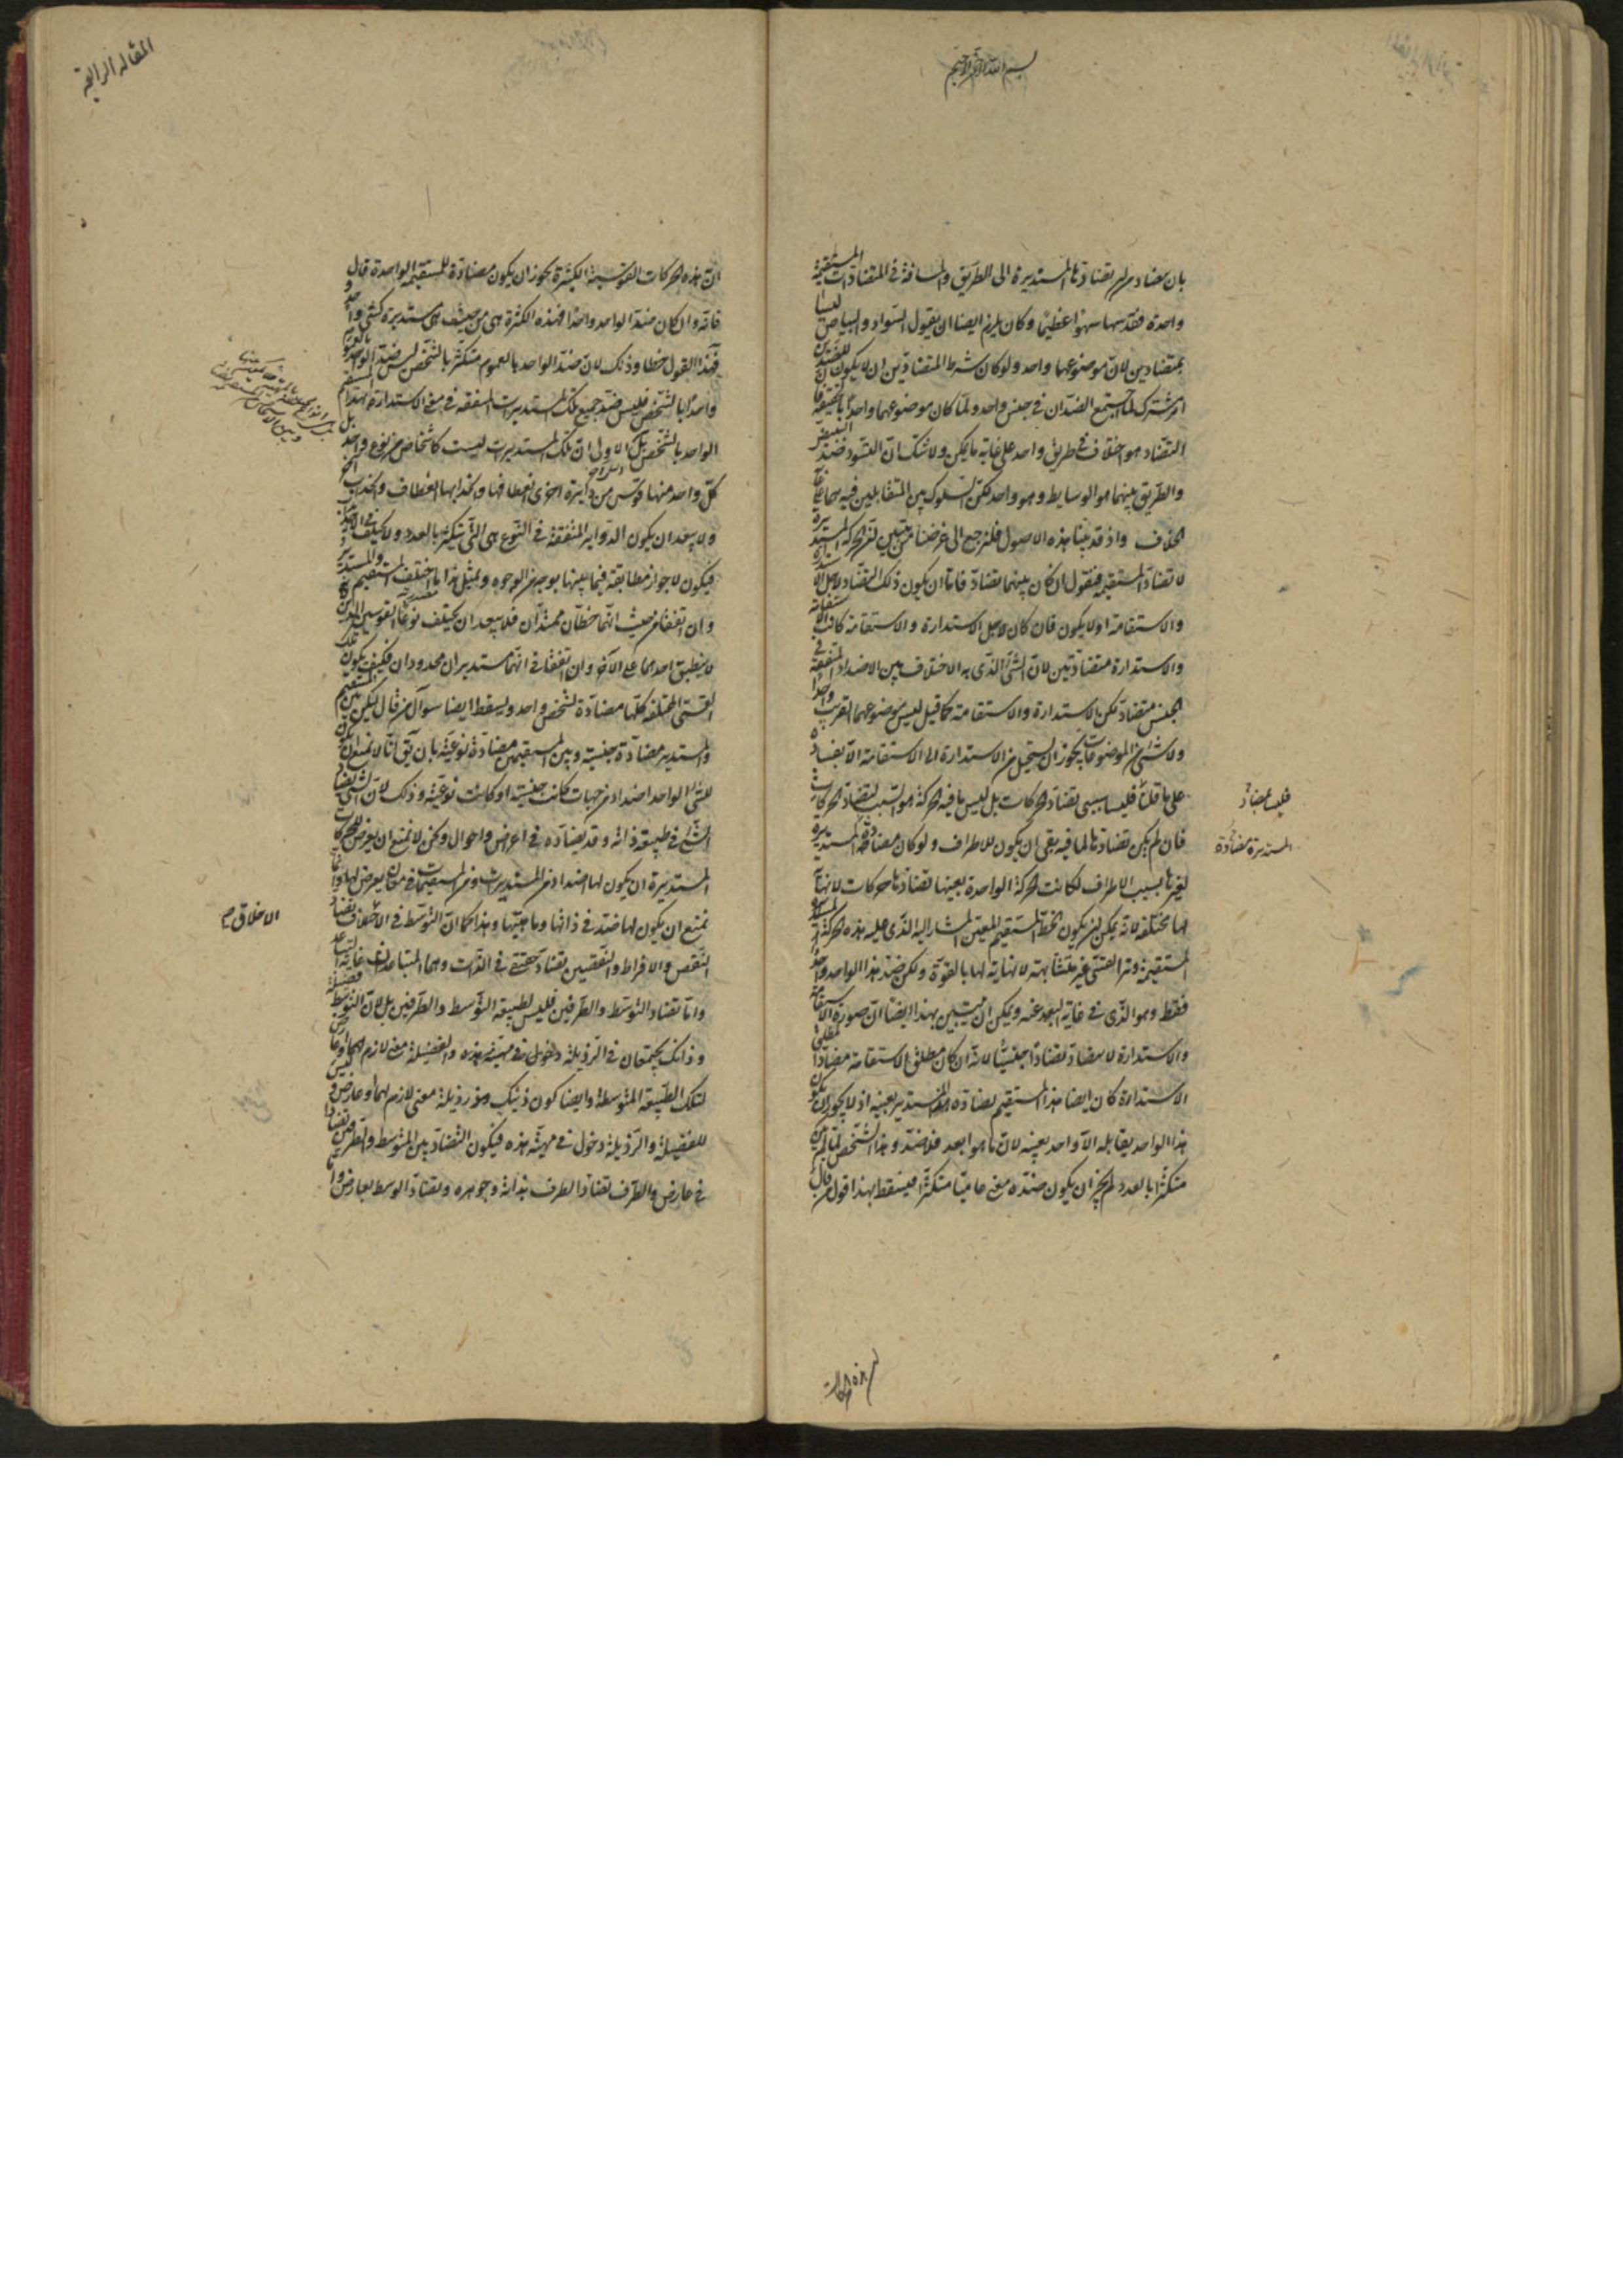 بسم الله الرحمن الرحيم
بان مضاد لم تضادها المستديرة الى الطريق والمسافة فى المتضادات المستقيمة
واحدة فقد سها سهوا عظيما وكان يلزم ايضا ان يقول السواد والبياض ليسا
بمتضادين لان موضوعهما واحد ولو كان شرط المتضادين ان لا يكون للضدين
امر مشترك لما اجتمع الضدان فى جنس واحد ولما كان موضوعهما واحدا بالحقيقة فان
التضاد هو اختلاف فى طريق واحد على غاية ما يمكن ولا شك ان التسود ضد التبيض
والطريق بينهما هو الوسايط وهو واحد لكن السلوك بين المتقابلين فيه هما غايتا
الخلاف واذ قد بينا هذه الاصول فلنرجع الى غرضنا من تبيين ان الحركة المستديرة
لا تضاد المستقيمة فنقول ان كان بينهما تضاد فاما ان يكون ذلك التضاد لاجل الاستدارة
والاستقامة او لا يكون فان كان لاجل الاستدارة والاستقامة كانت الاستقامة
والاستدارة متضادتين لان الشئ الذى به الاختلاف بين الاضداد المتفقة فى
الجنس متضاد لكن الاستدارة والاستقامة كما قيل ليس موضوعهما القريب واحدا
ولا شئ من الموضوعات يجوز ان يستحيل من الاستدارة الى الاستقامة الا بفساده
على ما قلنا فليسا بسببى تضاد الحركات بل ليس ما فيه الحركة هو السبب لتضاد الحركات
فان لم يكن تضادها لما فيه بقى ان يكون للاطراف ولو كان مضادة المستديرة
لغيرها بسبب الاطراف لكانت الحركة الواحدة بعينها تضادها حركات لا نهاية
لها مختلفة لانه يمكن ان يكون الخط المستقيم المعين المشار اليه الذى عليه هذه الحركة
المستقيمة وترا لقسى غير متشابهة لا نهاية لها بالقوة ولكن ضد هذا الواحد واحد
فقط وهو الذى فى غاية البعد عنه ويمكن ان يتبين بهذا ايضا ان صورة الاستقامة
والاستدارة لا يتضاد تضادا جنسيا لانه ان كان مطلق الاستقامة مضادا لمطلق
الاستدارة كان ايضا هذا المستقيم يضاده هذا المستدير بعينه اذ لا يجوز ان يكون
هذا الواحد يقابله الا واحد بعينه لان ما هو ابعد فهو ضد وهذا الشخص لما لم يكن
متكثرا بالعدد لم يجز ان يكون ضده معنى عاميا متكثرا فيسقط بهذا قول من قال
فليسا بمضاد
المستديرة مضادة
المقالة الرابعة
ان هذه الحركات القوسية الكثيرة يجوز ان يكون مضادة للمستقيمة الواحدة قال
فانه وان كان ضد الواحد واحدا فهذه الكثرة هى من حيث هى مستديرة كشئ واحد
فهذا القول خطا وذلك لان ضد الواحد بالعموم متكثر بالشخص ليس ضد الواحد بالعموم
واحدا بالشخص فليس ضد جميع تلك المستديرات المتفقة فى معنى الاستدارة هذا المستقيم
الواحد بالشخص بل الاولى ان تلك المستديرات ليست كاشخاص من نوع واحد بل
كل واحد منها قوس من دايرة اخرى انعطافها وتحدبها انعطاف وتحدب اخر
ولا يبعد ان يكون الدواير المتفقة فى النوع هى التى تتكثر بالعدد ولا يختلف
فيكون لا جواز مطابقة فيما بينها بوجه من الوجوه وبمثل هذا ما اختلف المستقيم والمستدير
وان اتفقا من حيث انهما خطان ممتدان فلا يبعد ان يختلف نوعا القوسين اللذين
لا ينطبق احدهما على الاخر وان اتفقا فى انهما مستديران محدودان فكيف يكون تلك
القسى المختلفة كلها مضادة لشخص واحد ويسقط ايضا سوال من قال ليكن بين المستقيم
والمستدير مضادة جنسية وبين المستقيمين مضادة نوعية بان يق انا لا نمنع ان يكون
للشئ الواحد اضداد من جهات كانت جنسية او كانت نوعية وذلك لان الشئ يضاد
الشئ فى طبيعة ذاته وقد يضاده فى اعراض واحوال ولكن لا نمنع ان يعرض للحركات
المستديرة ان يكون لها اضداد من المستديرات ومن المستقيمات فى معان يعرض لها وانما
نمنع ان يكون لها ضد فى ذاتها وماهيتها وهذا كما ان التوسط فى الاخلاق تضاد
النقص والافراط والنقصين تضاد حقيقى فى الذات وهما المتباعدان غاية التباعد
واما تضاد التوسط والطرفين فليس لطبيعة التوسط والطرفين بل لان التوسط فضيلة
وذانك يجتمعان فى الرذيلة دخول فى مهية هذه والفضيلة معنى لازم لها او عارض ليس
لتلك الطبيعة المتوسطة وايضا كون ذينك رذيلة معنى لازم لهما او عارض وليس
للفضيلة والرذيلة دخول فى مهية هذه فيكون التضاد بين المتوسط والطرفين تضادا
فى عارض والطرف تضاد الطرف بذاته وجوهره وتضاد الوسط بعارض وانما
الاخلاق